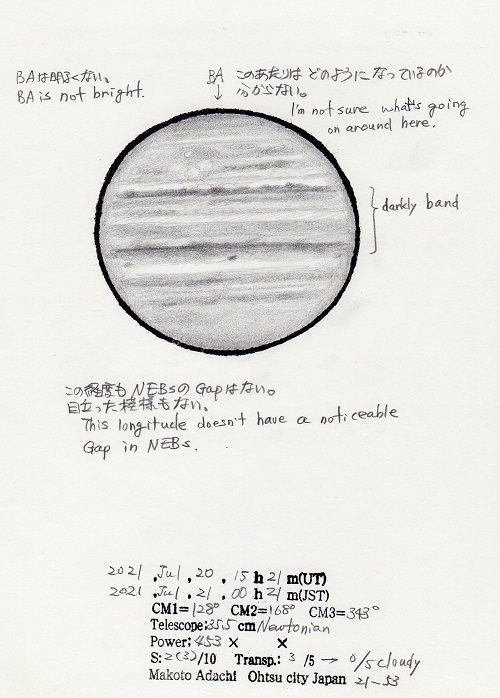 BAは明るくない。
BA is not bright.
BA
このあたりは どのように なっているのか
分からない。
I'm not sure what's going
on around here.
darkly band
この経度も NEBsの Gapはない。
目立った模様もない。
This longitude doesn't have a noticeable
Gap in NEBs.
2021 ,Jul , 20 , 15 h 21 m(UT)
2021 ,Jul , 21 , 00 h 21 m(JST)
CM1=128° CM2=168° CM3=343°
Telescope:355 cm Newtonian
Power: 453 × ×
S: 2(3)/10 Transp.: 3 /5 → 0/5 cloudy
Makoto Adachi Ohtsu city Japan 21-53